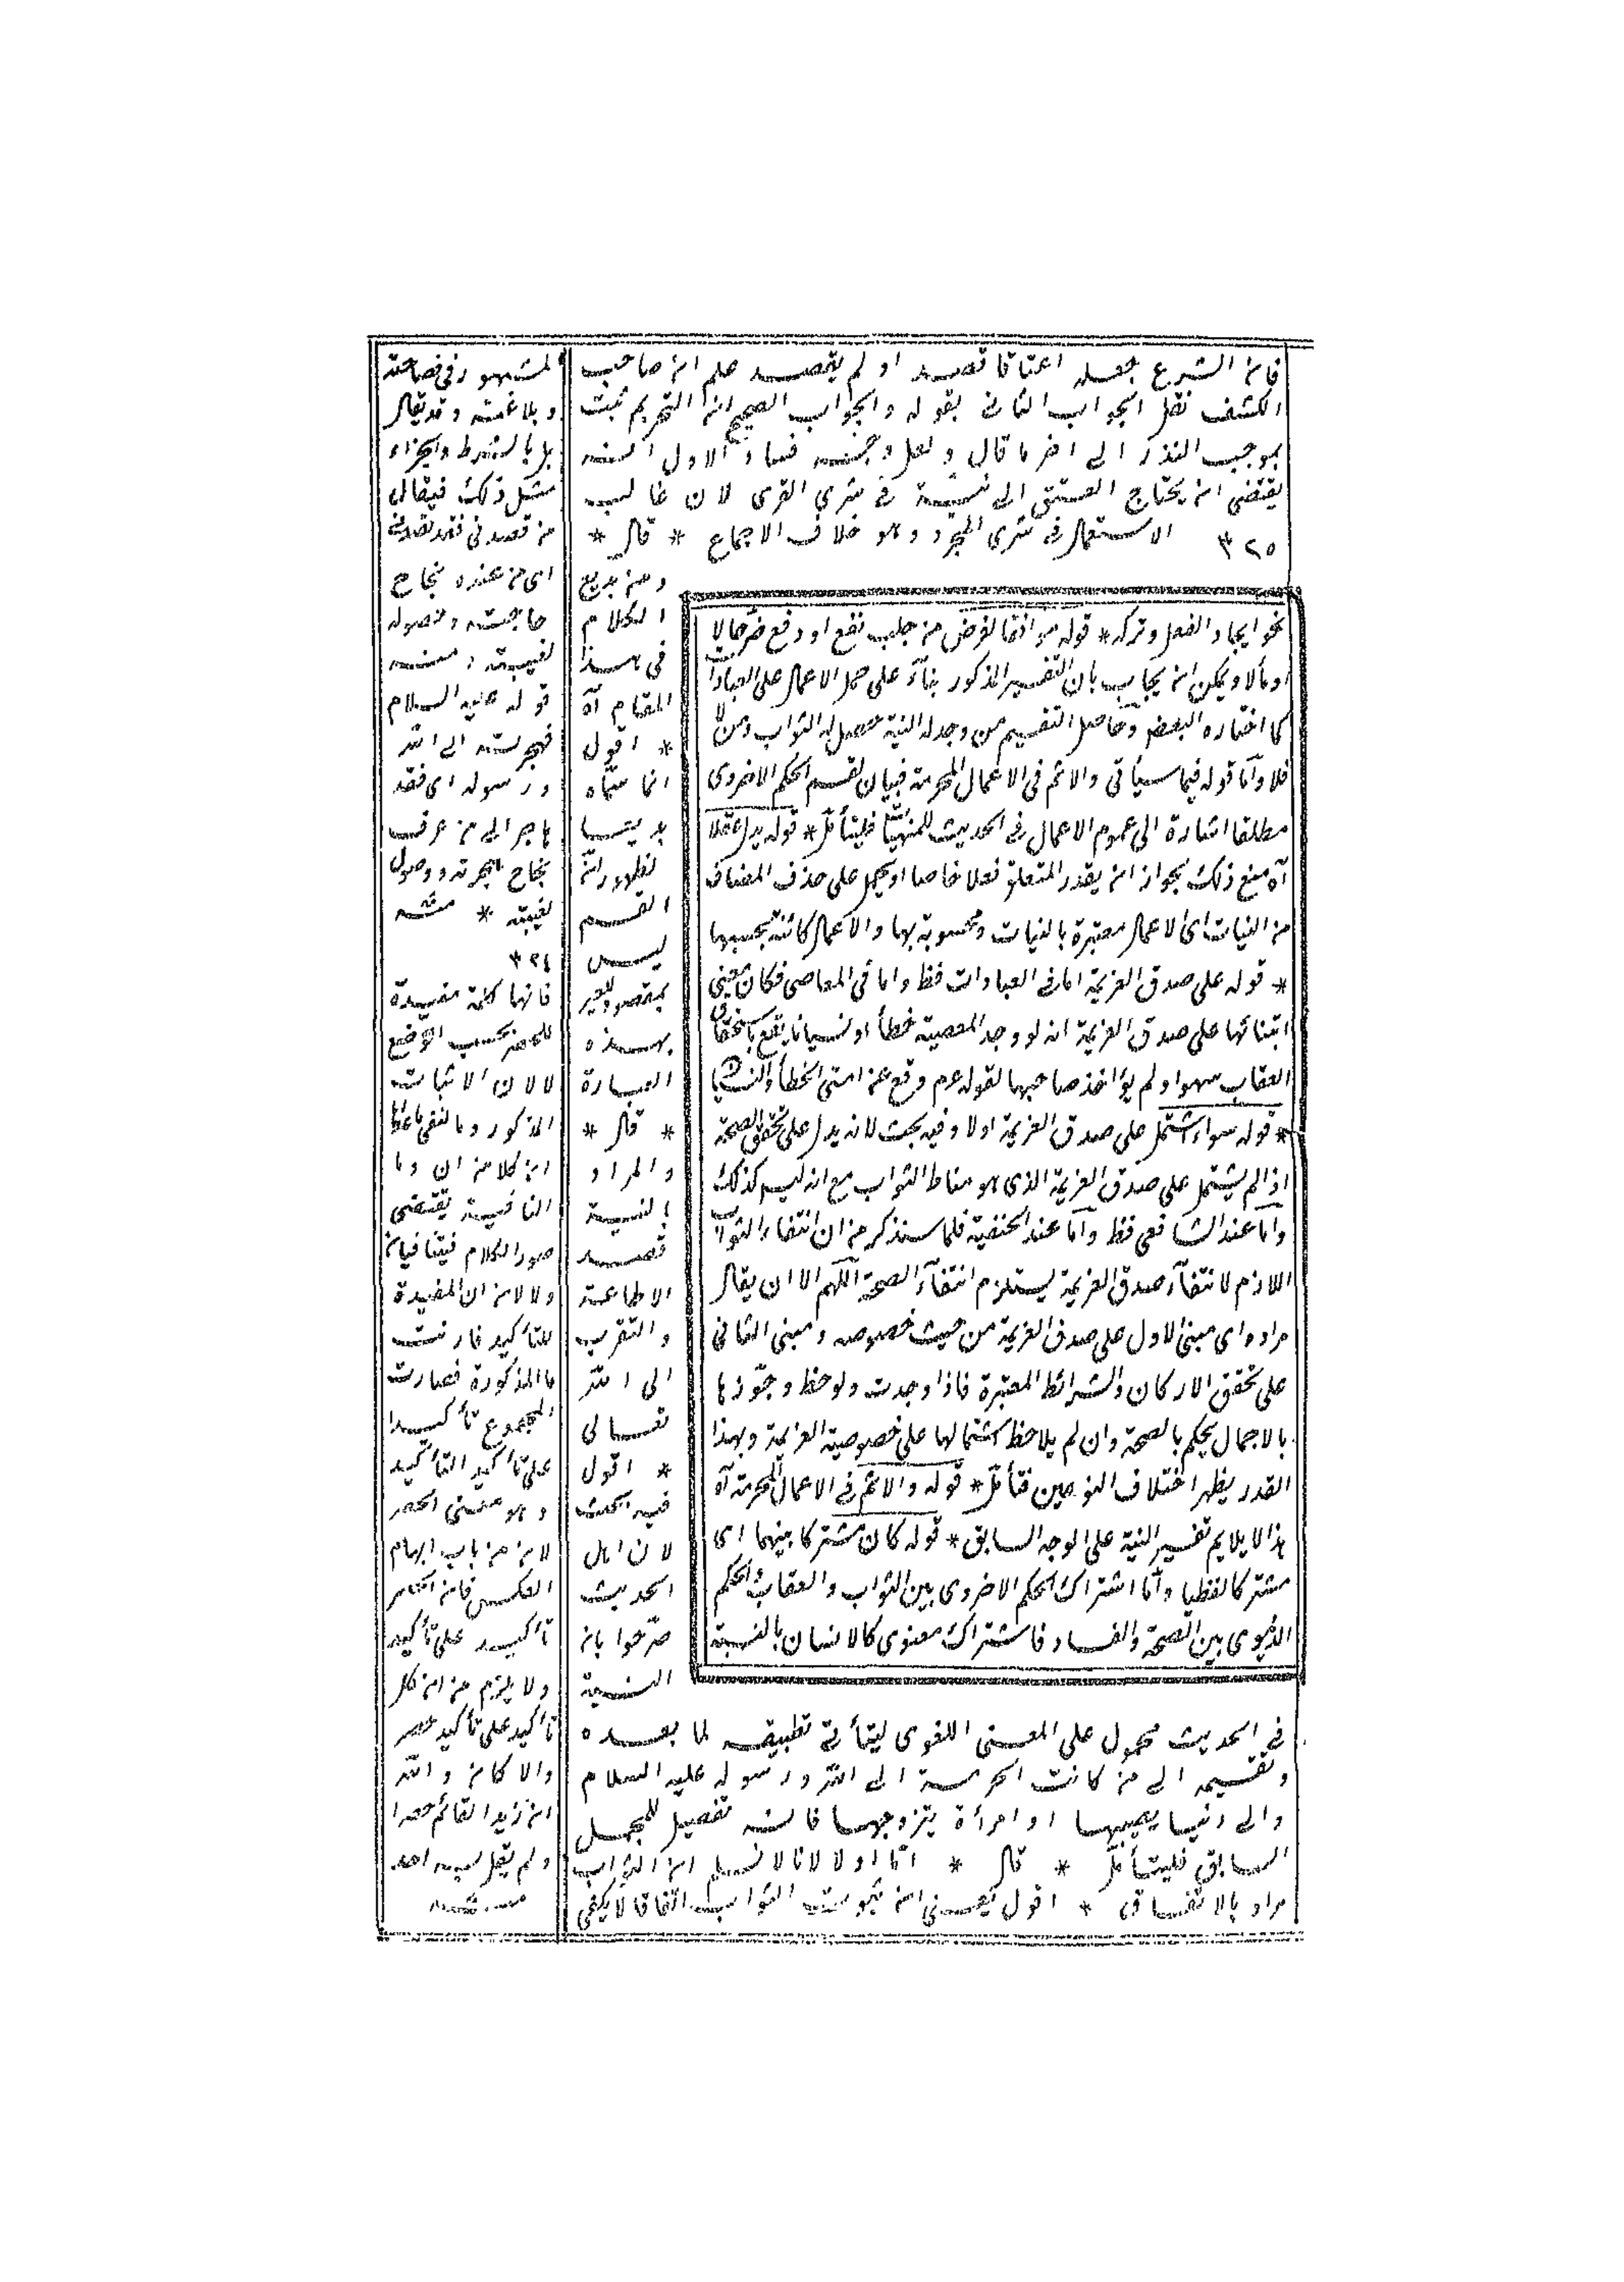 فان الشرع جعله اعتاقا قصد او لم يقصد علم ان صاحب
الكشف نقل الجواب الثانى بقوله والجواب الصحيح ان التحريم ثبت
بموجب النذر الى اخر ما قال ولعل وجه فساد الاول انه
يقتضى ان يحتاج العتق الى نية فى شرى القرى لان غالب
٣٢٥ الاستعمال فى شرى المجرد وهو خلاف الاجماع * قال *
ومن بديع
الكلام
فى هذا
المقام آه
* اقول
انما سماه
بديعا
لظهور ان
القسم
ليس
بمقصود
بهذه
العبارة
* قال *
والمراد
بالنية
قصد
الاطاعة
والتقرب
الى الله
تعالى
* اقول
فيه بحث
لان اهل
الحديث
صرحوا بان
النية
فى الحديث محمول على المعنى اللغوى ليتأتى تطبيقه لما بعده
وتقسيمه الى من كانت الى الله ورسوله عليه السلام
والى دنيا يصيبها او امرأة يتزوجها فانه تفصيل للمجمل
السابق فليتأمل * قال * اما اولا فلانا لا نسلم ان الثواب
مراد بالاتفاق * اقول يعنى ان ثبوت الثواب اتفاقا لا يكفى
نحو ايجاد الفعل وتركه * قوله موافقا لغرض من جلب نفع او دفع ضر حالا
او مآلا ويمكن ان يجاب بان التفسير المذكور بناء على حمل الاعمال على العبادات
كما اختاره البعض وحاصل التقسيم من وجد له النية حصل له الثواب ومن لا
فلا واما قوله فيما سيأتى والاثم فى الاعمال المحرمة فبيان لقسم الحكم الاخروى
مطلقا اشارة الى عموم الاعمال فى الحديث للمنهيات فليتأمل * قوله يدل عقلا
آه منع ذلك بجواز ان يقدر المتعلق فعلا خاصا او يحمل على حذف المضاف
من النيات اى الاعمال معتبرة بالنيات ومحسوبة بها والاعمال كائنة بحسبها
* قوله على صدق العزيمة اما فى العبادات فظ واما فى المعاصى فكان معنى
ابتنائها على صدق العزيمة انه لو وجد المعصية خطأ او نسيانا يقع باستحقاق
العقاب سهوا ولم يؤاخذ صاحبها لقوله عم رفع عن امتى الخطأ والنسيان
* قوله سواء اشتمل على صدق العزيمة اولا وفيه بحث لانه يدل على تحقق الصحة
اذا لم يشتمل على صدق العزيمة الذى هو مناط الثواب مع انه ليس كذلك
واما عند الشافعى فظ واما عند الحنفية فلما سنذكر من ان انتفاء الثواب
اللازم لانتفاء صدق العزيمة يستلزم انتفاء الصحة اللهم الا ان يقال
مراده اى مبنى الاول على صدق العزيمة من حيث خصوصه ومبنى الثانى
على تحقق الاركان والشرائط المعتبرة فاذا وجدت ولوحظ وجوزها
بالاجمال يحكم بالصحة وان لم يلاحظ اشتمالها على خصوصية العزيمة وبهذا
القدر يظهر اختلاف النوعين فتأمل * قوله والاثم فى الاعمال المحرمة آه
هذا لا يلايم تفسير النية على الوجه السابق * قوله كان مشتركا بينهما اى
مشتركا لفظيا واما اشتراك الحكم الاخروى بين الثواب والعقاب والحكم
الدنيوى بين الصحة والفساد فاشتراك معنوى كالانسان بالنسبة
المشهور فى فصاحته
وبلاغته وقد يقال
بل بالشرط والجزاء
مثل ذلك فيقال
من قصدنى فقد قصدنى
اى من عنده نجاح
حاجته وحصوله
لغيبته ومنه
قوله عليه السلام
فهجرته الى الله
ورسوله اى فقد
هاجر الى من عرف
نجاح هجرته ووصول
لغيبته * منه
٣٢٤
فانها كلمة مفيدة
للحصر بحسب الوضع
لا لان الاثبات
المذكور وما لنفى ما عداه
ان كلا من ان وما
النافية يقتضى
صدر الكلام فيتنافيان
ولا لان ان المفيدة
للتأكيد قارنت
ما المذكورة فصارت
المجموع تأكيدا
على تأكيد التأكيد
وهو معنى الحصر
لانه من باب ايهام
العكس فان الحصر
تأكيد على تأكيد
ولا يلزم من ان كل
تأكيد على تأكيد حصر
والا كان والله
ان زيدا لقائم حصرا
ولم يقل به احد
منه